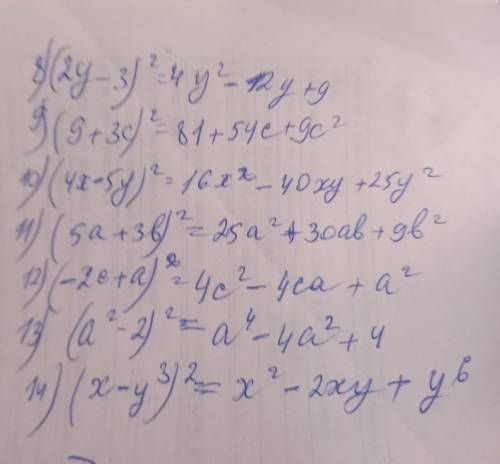 8) (2y-3)² = 4y² - 12y + 9
9) (9+3c)² = 81 + 54c + 9c²
10) (4x-5y)² = 16x² - 40xy + 25y²
11) (5a+3b)² = 25a² + 30ab + 9b²
12) (-2c+a)² = 4c² - 4ca + a²
13) (a²-2)² = a⁴ - 4a² + 4
14) (x-y³)² = x² - 2xy + y⁶